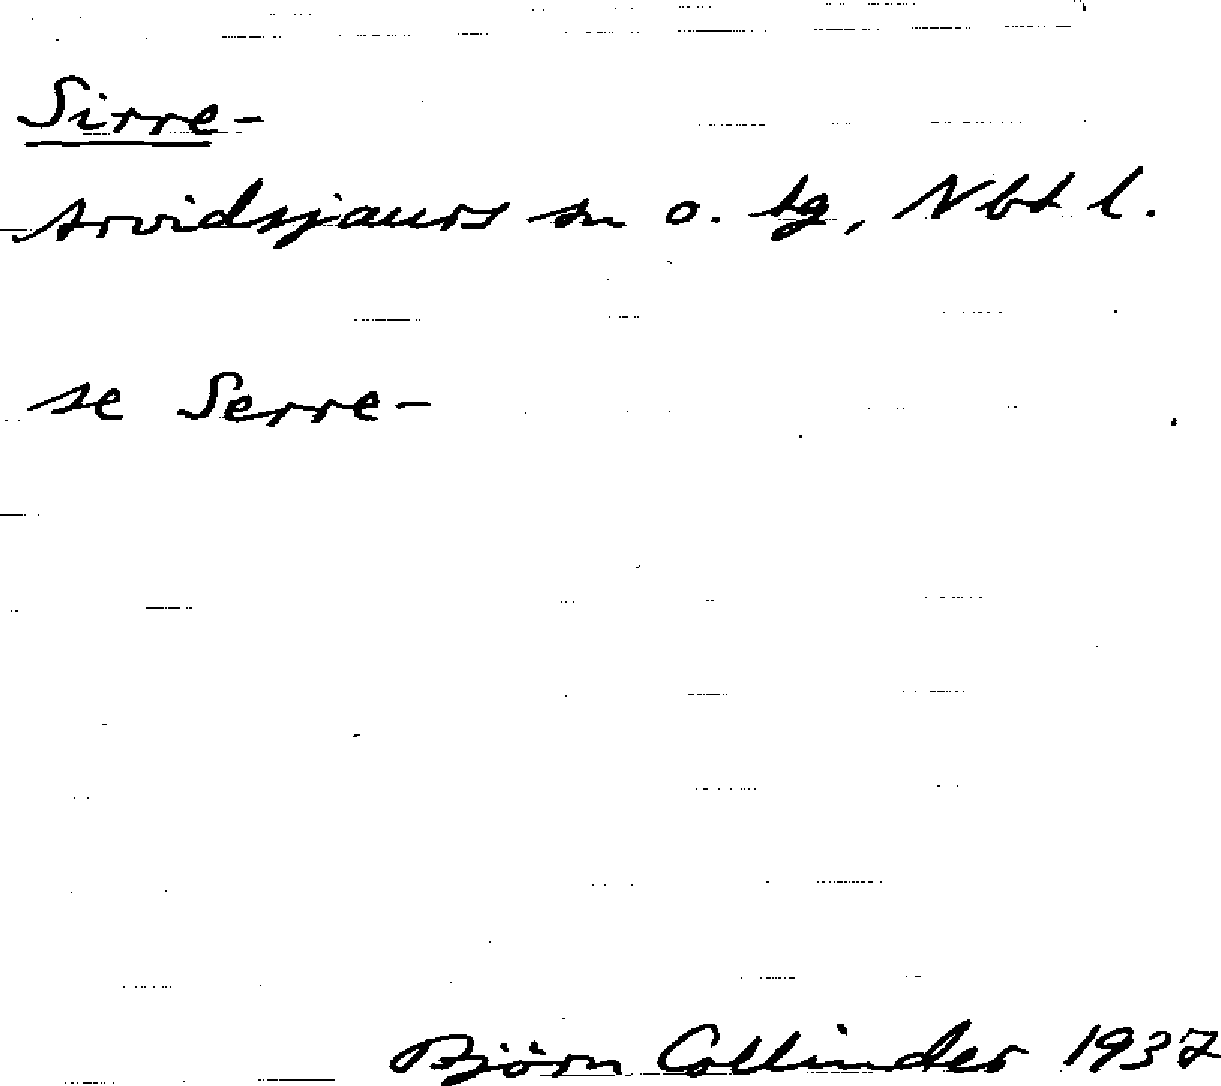 Sirre-
Arvidsjaurs sn o. tg, Nbt l.
se Serre-
Björn Collinder 1937